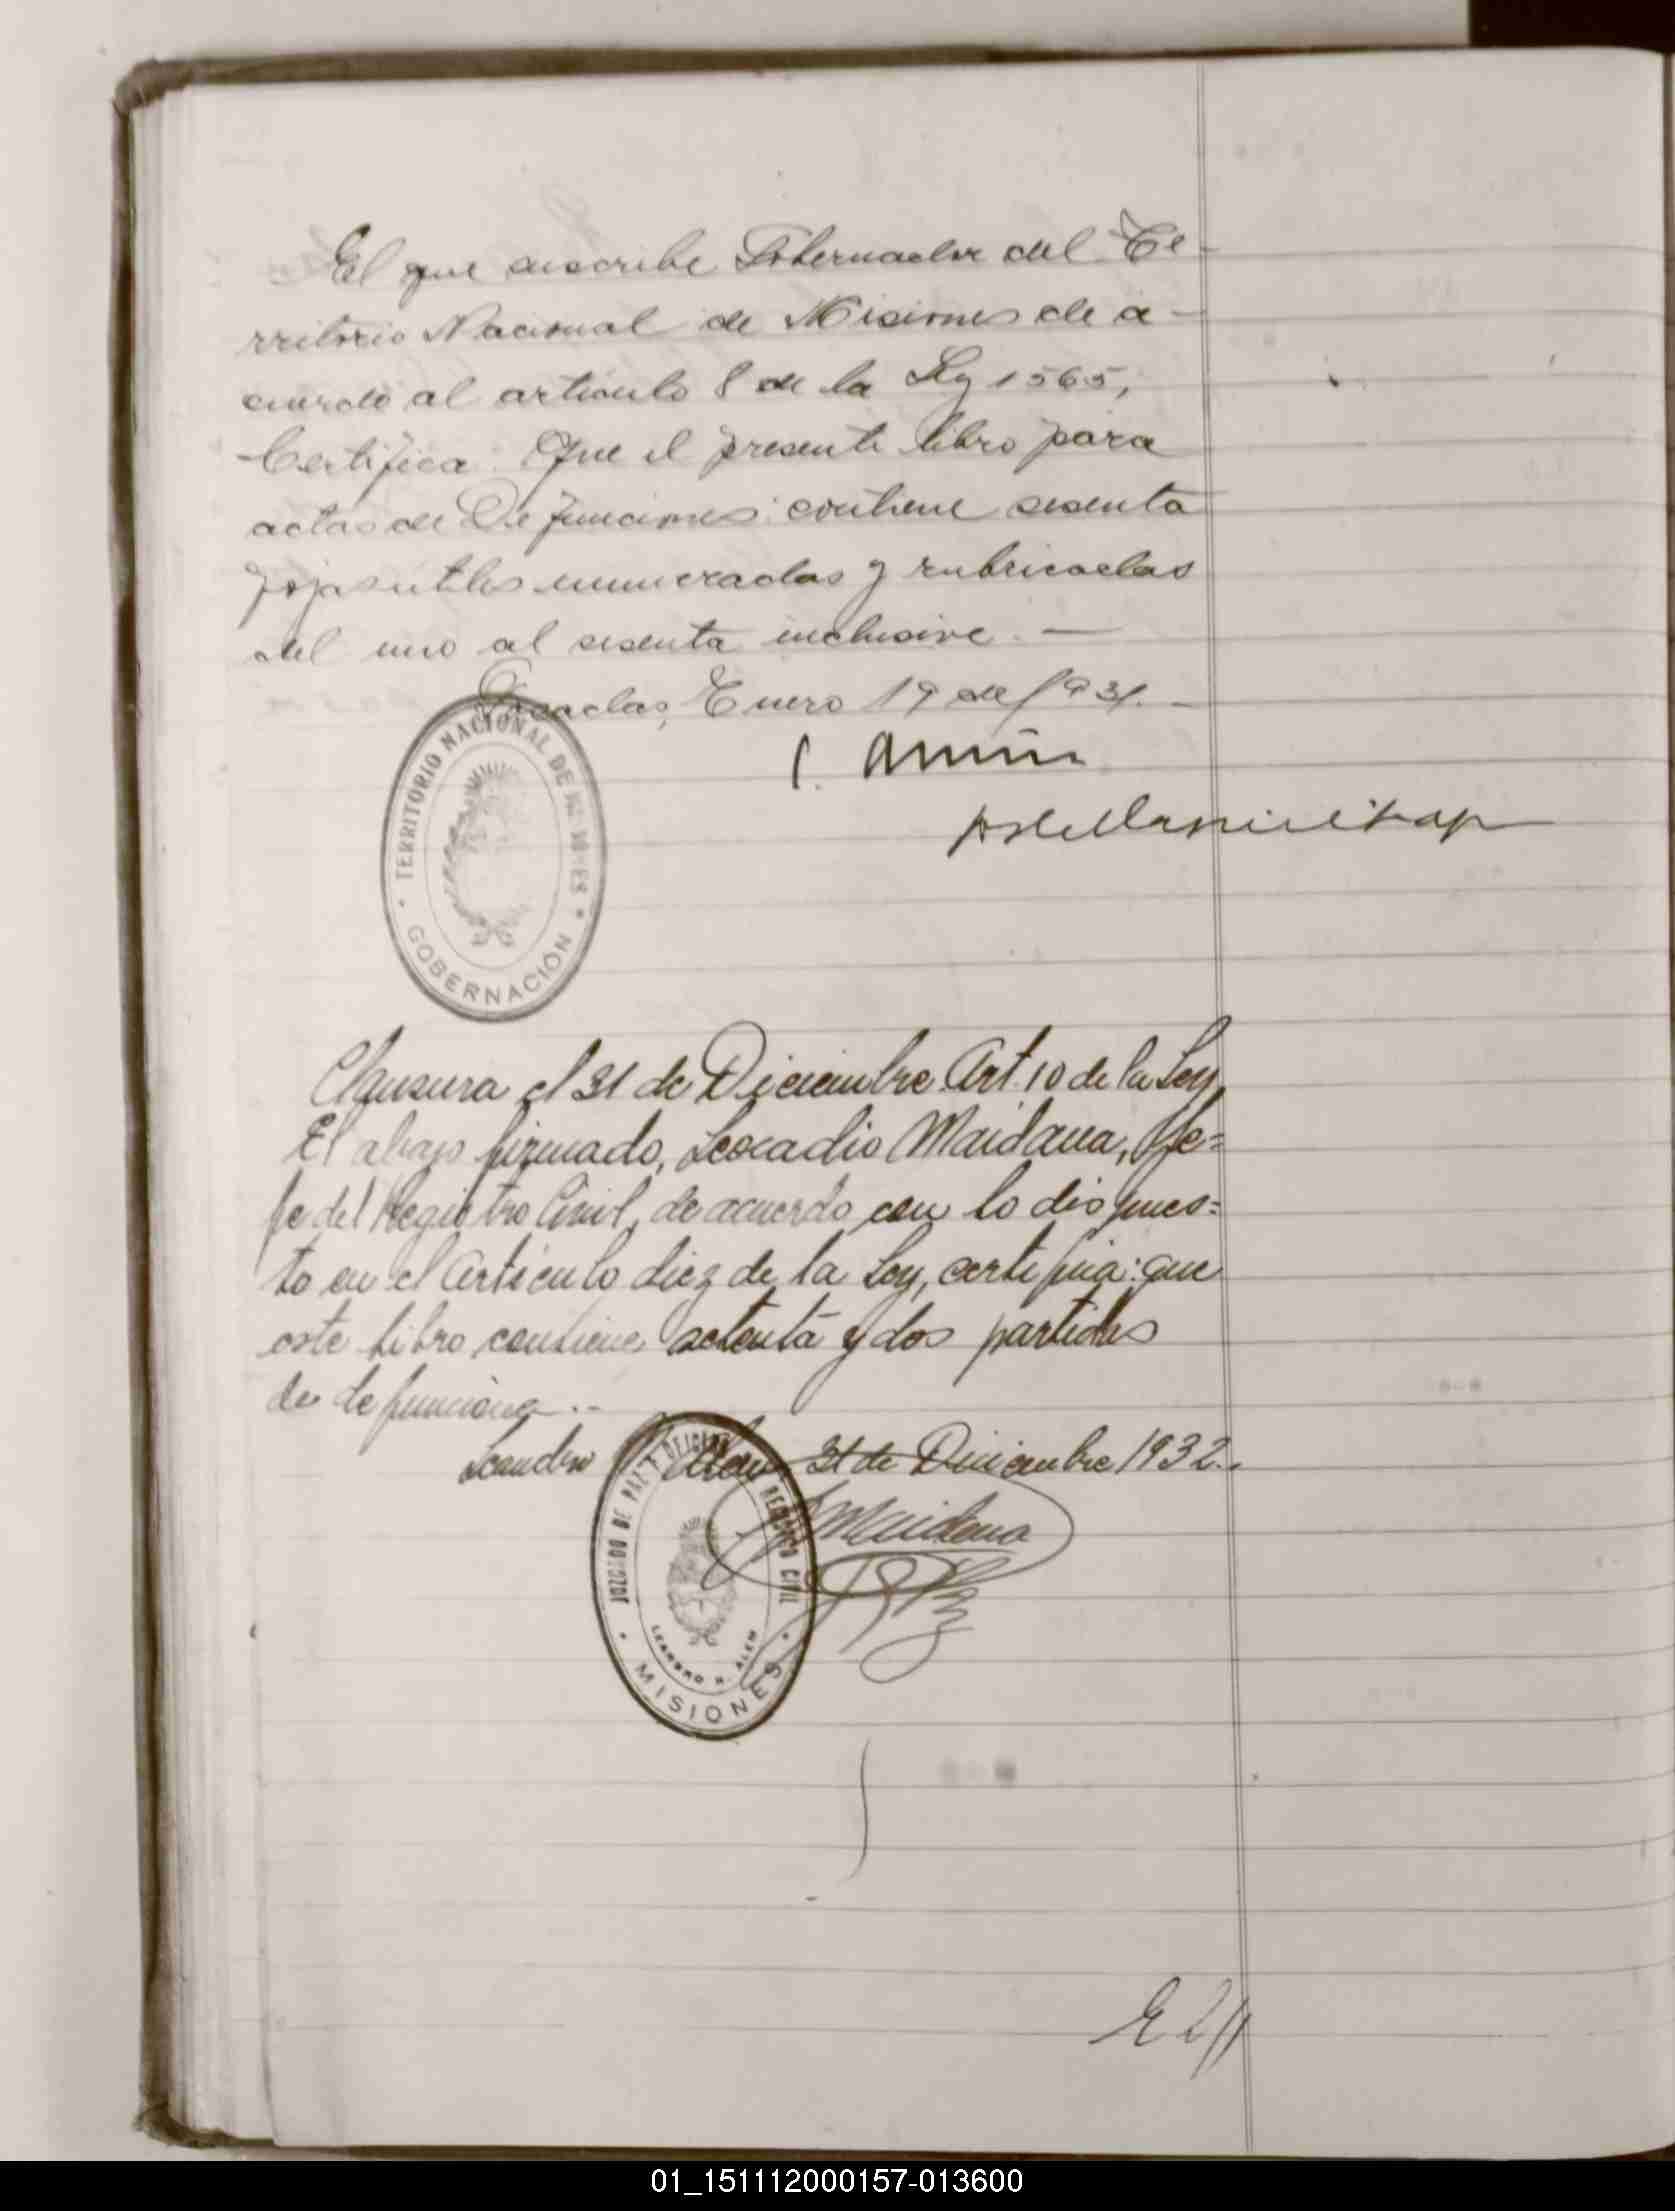 El que suscribe Gobernador del Te-
rritorio Nacional de Misiones de a-
cuerdo al articulo 8 de la Ley 1565,
Certifica: Que el presente libro para
actas de Defunciones: contiene sesenta
fojas utiles enumeradas y rubricadas
del uno al sesenta inclusive. —
Posadas, Enero 19 de 1931. -
TERRITORIO NACIONAL DE MISIONES
GOBERNACIÓN
Clausura el 31 de Diciembre Art. 10 de la Ley,
El abajo firmado, Leocadio Maidana, Je=
fe del Registro Civil, de acuerdo con lo dispues=
to en el Articulo diez de la Ley, certifica: que
este libro contiene setenta y dos partidas
de defunciòn..-
Leandro N. Alem 31 de Diciembre 1932.-
Maidana
JUZGADO DE PAZ Y OFICINA REGISTRO CIVIL
LEANDRO N. ALEM
MISIONES
01_151112000157-013600